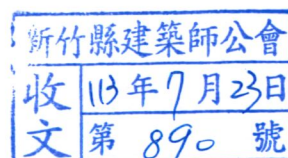 新竹縣建築師公會
收文
113年7月23日
第 890 號